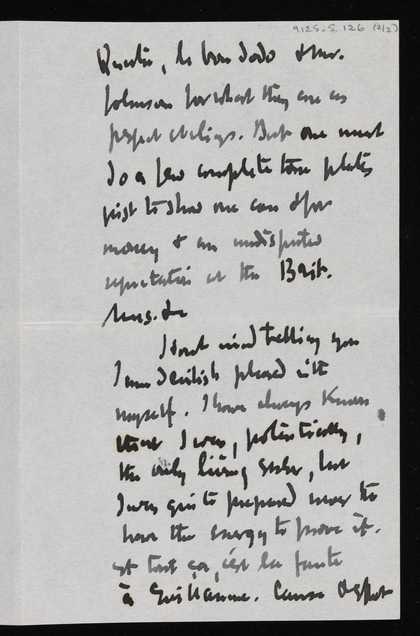 9125.5.126 (2/2)
le bon dodo & Mr.
Johnson for what they are as
perfect etchings. But one must
do a few complete tone plates
just to show one can & for
money & an undisputed
reputation at the Brit.
Mus. &c
I don't mind telling you
I am devilish pleased with
myself. I have always known
that I was, potentially,
the only living etcher, but
I was quite prepared never to
have the energy to prove it.
et tout ça, c'est la faute
à Guillaume. Cause